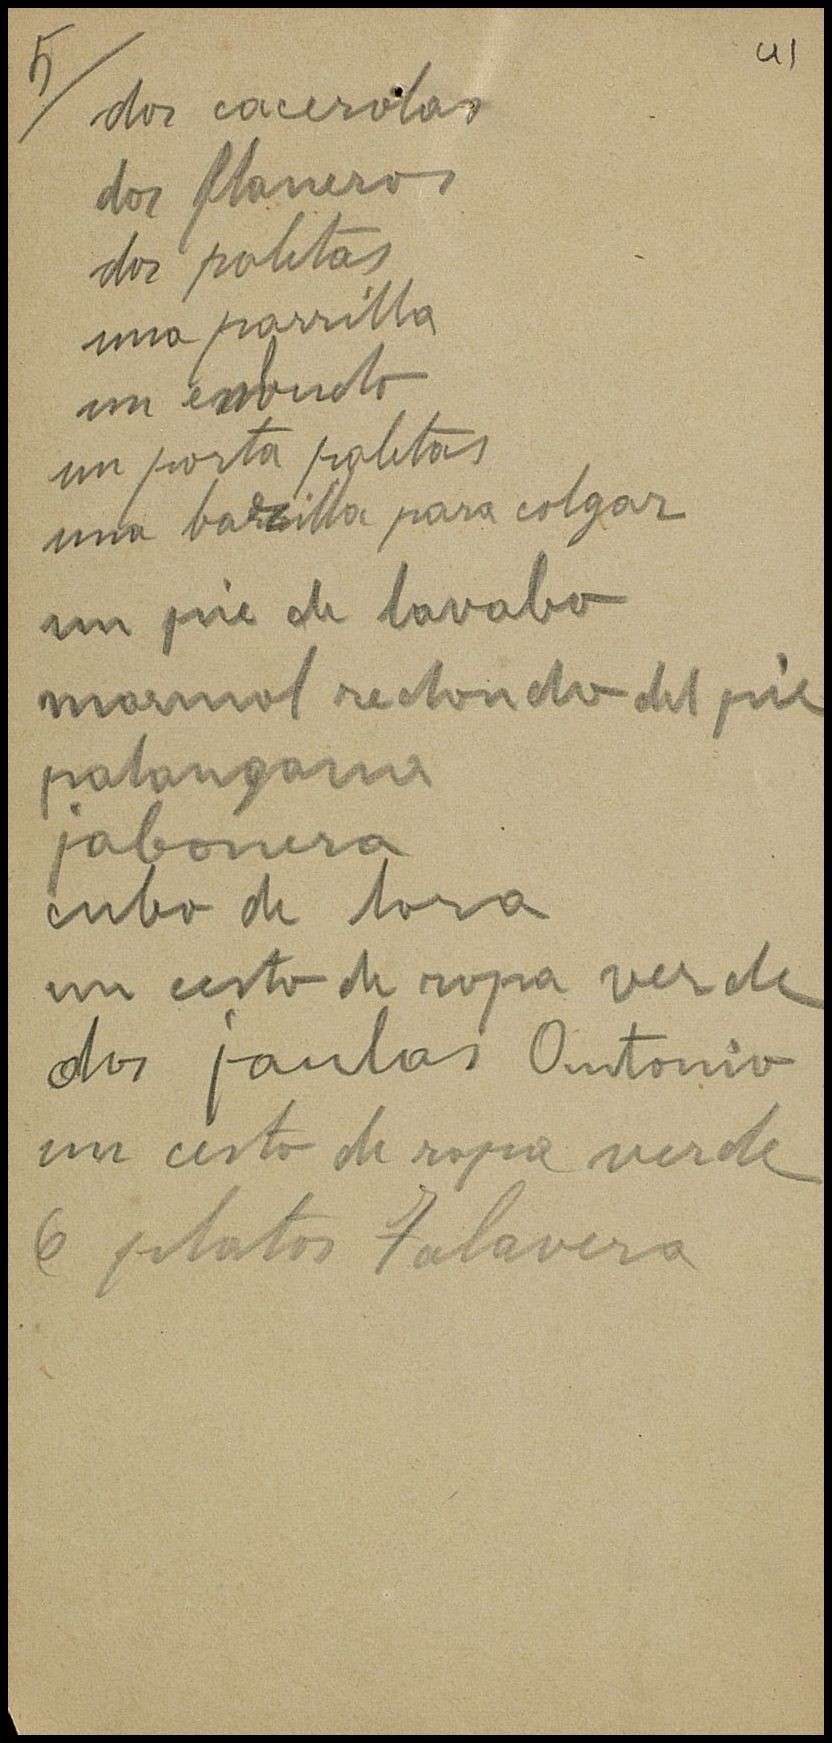 5/
41
dos cacerolas
dos flaneros
dos paletas
una parrilla
un embudo
un porta paletas
una barilla para colgar
un pie de lavabo
marmol redondo del pie
palangana
jabonera
cubo de loza
un cesto de ropa verde
dos jaulas Antonio
un cesto de ropa verde
6 platos Talavera